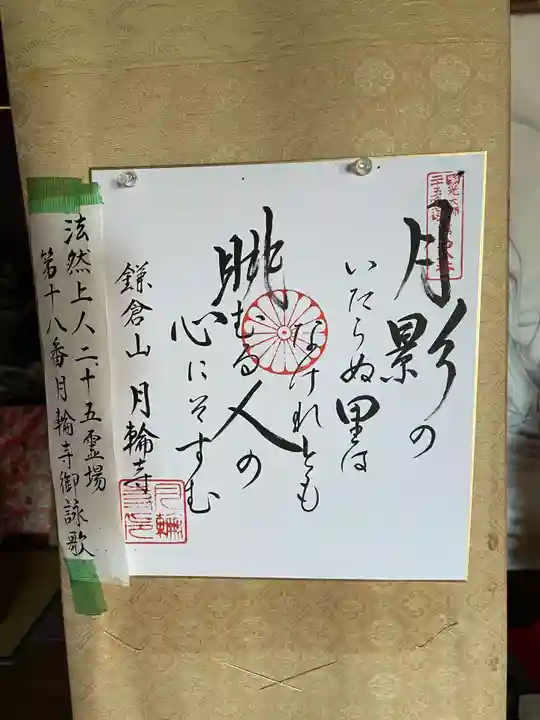 月影の
いたらぬ里は
なけれども
眺むる人の
心にぞすむ
鎌倉山 月輪寺
法然上人二十五霊場
第十八番月輪寺御詠歌